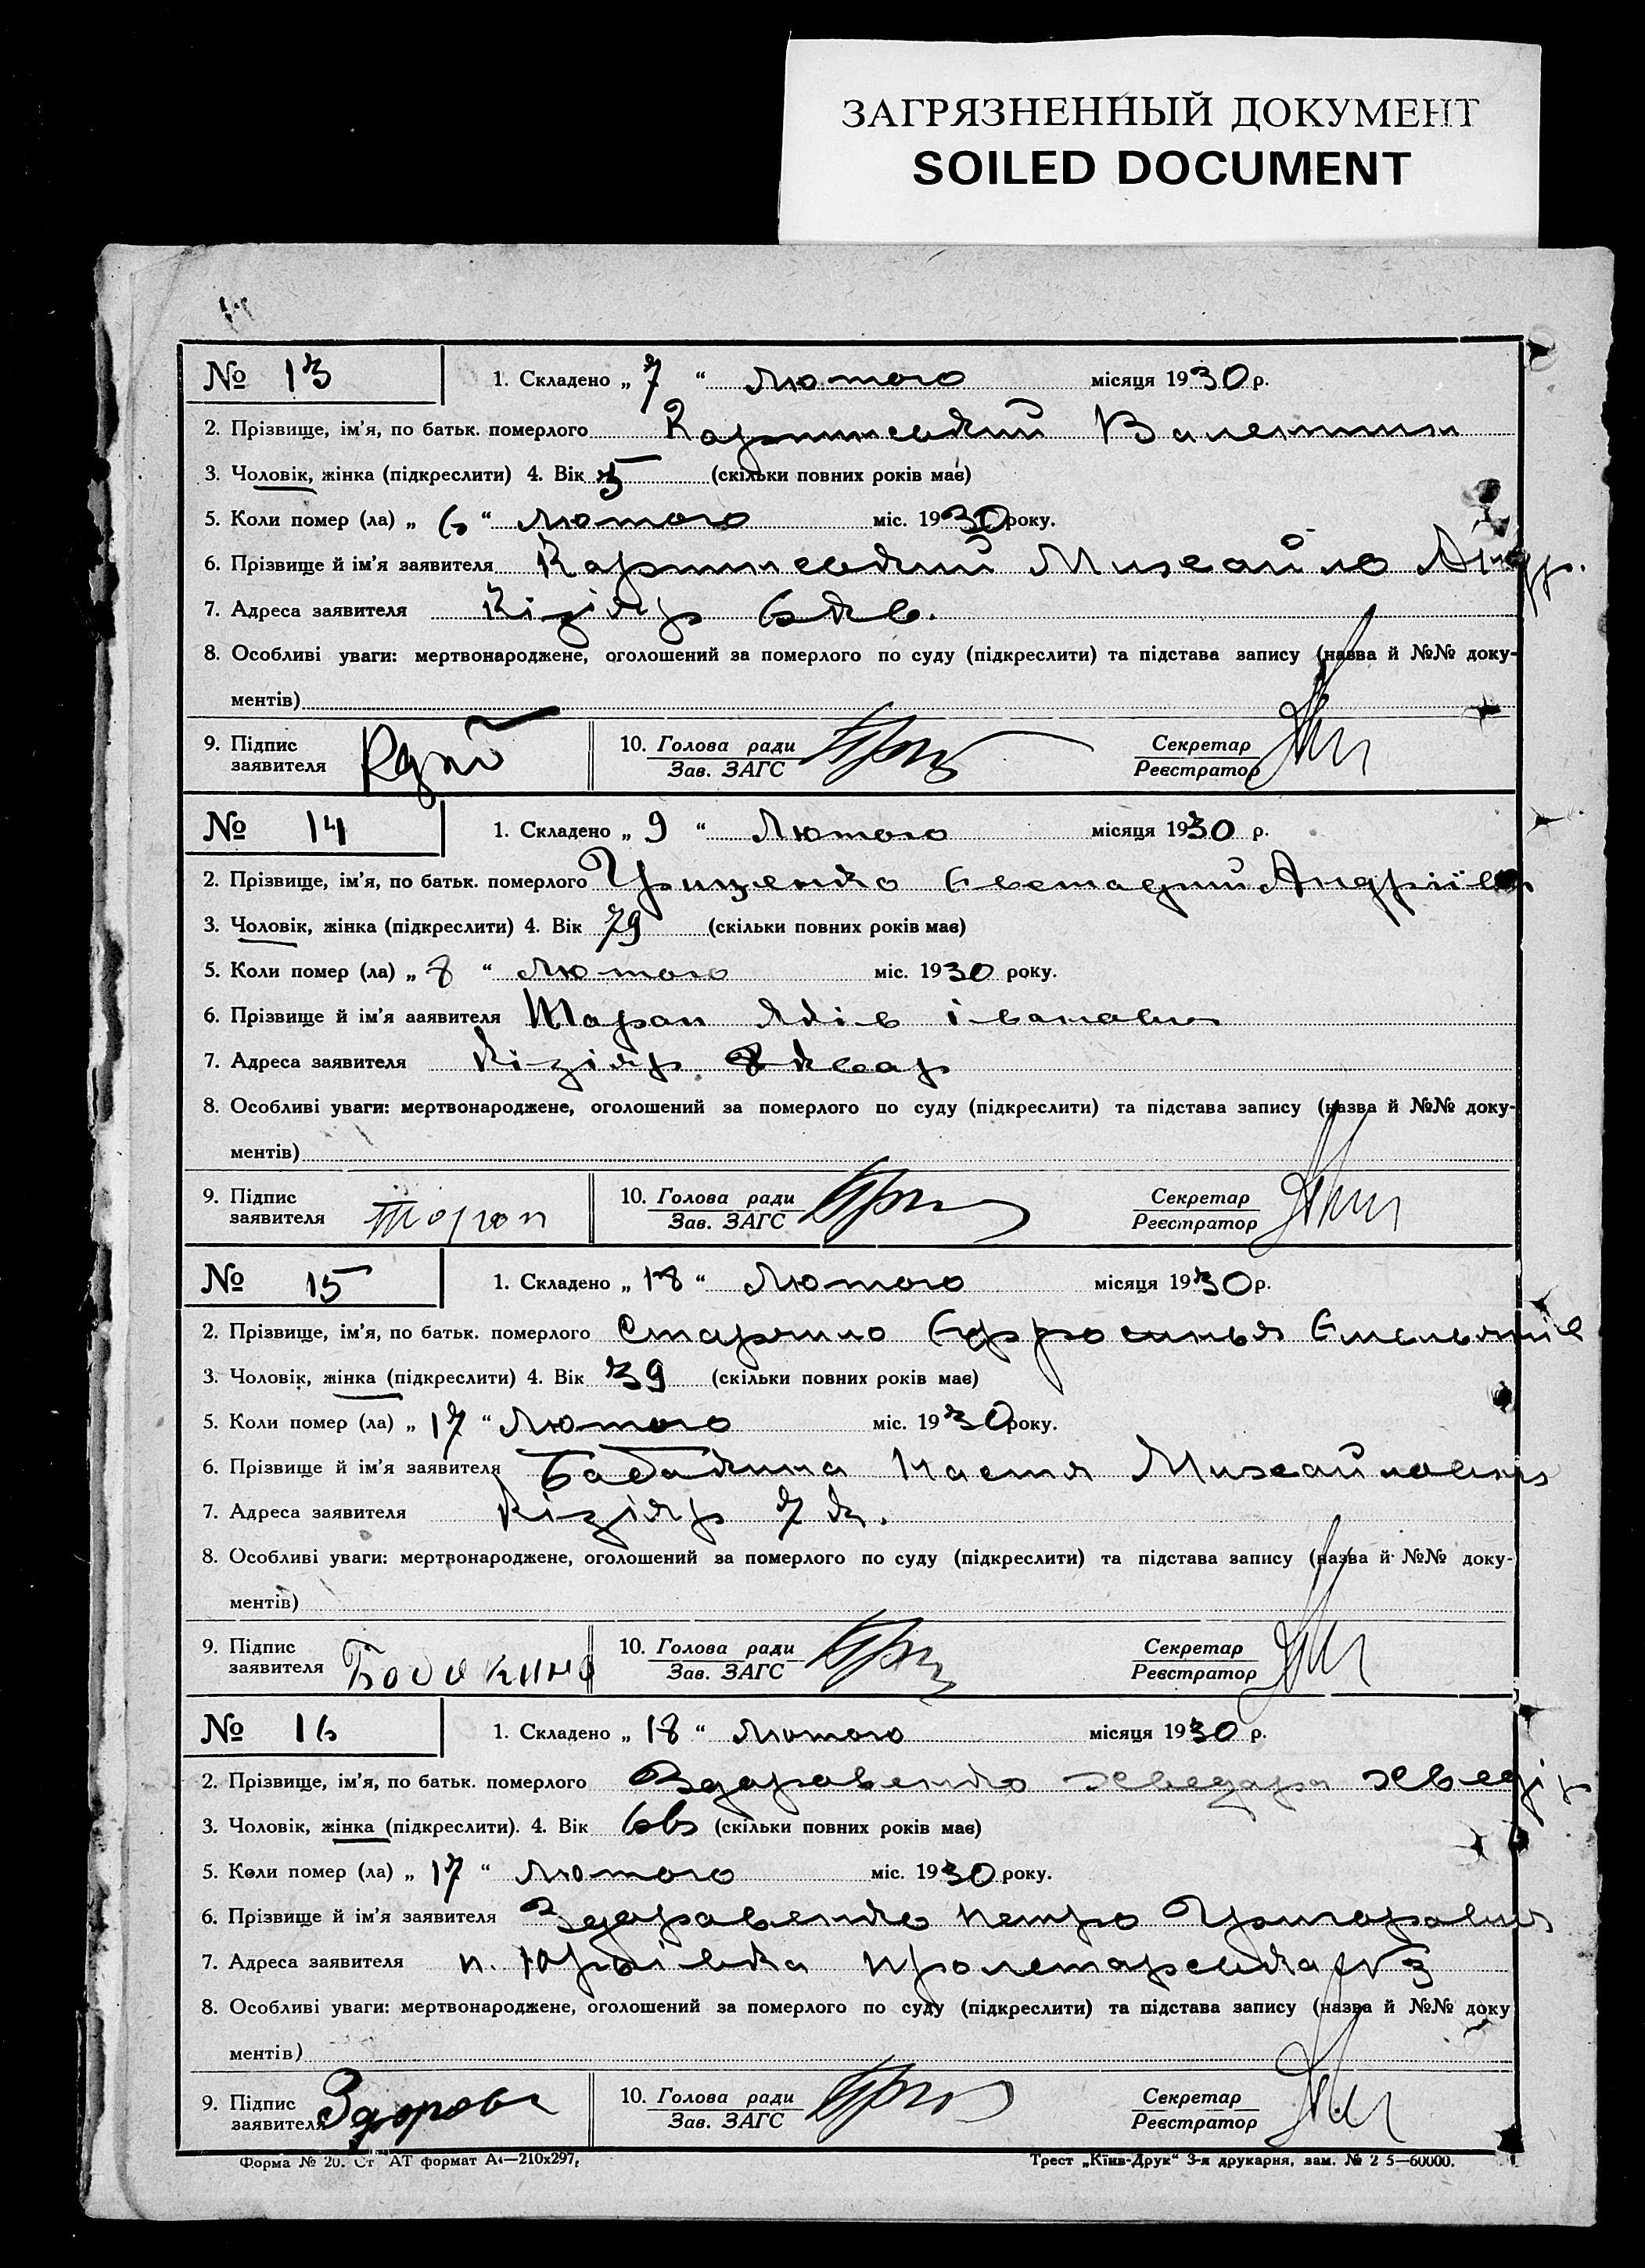 ЗАГРЯЗНЕННЫЙ ДОКУМЕНТ
SOILED DOCUMENT
№ 13 1. Складено „ 7 “ Лютого місяця 1930 р.
2. Прізвище, ім'я, по батьк. померлого Валентин
3. Чоловік, жінка (підкреслити) 4. Вік 5 (скільки повних років має)
5. Коли помер (ла) „ 6 “ Лютого міс. 1930 року.
6. Прізвище й ім'я заявителя Михайло Андр.
7. Адреса заявителя Кізіяр 6 кв.
8. Особливі уваги: мертвонароджене, оголошений за померлого по суду (підкреслити) та підстава запису (назва й №№ доку-
ментів)
9. Підпис заявителя 10. Голова ради Зав. ЗАГС Секретар Реєстратор
№ 14 1. Складено „ 9 “ Лютого місяця 1930 р.
2. Прізвище, ім'я, по батьк. померлого Грищенко Євстадий Андріїв
3. Чоловік, жінка (підкреслити) 4. Вік 79 (скільки повних років має)
5. Коли помер (ла) „ 8 “ Лютого міс. 1930 року.
6. Прізвище й ім'я ааявителя Таран Яків Іванович
7. Адреса заявителя Кізіяр 8 квар
8. Особливі уваги: мертвонароджене, оголошений за померлого по суду (підкреслити) та підстава запису (назва й №№ доку-
ментів)
9. Підпис заявителя Торон 10. Голова ради Зав. ЗАГС Секретар Реєстратор
№ 15 1. Складено „ 18 “ Лютого місяця 1930 р.
2. Прізвище, ім'я, по батьк. померлого Єфросинья Емельянів
3. Чоловік, жінка (підкреслити) 4. Вік 39 (скільки повних років має)
5. Коли помер (ла) „ 17 “ Лютого міс. 1930 року.
6. Прізвище й ім'я заявителя Бабакина Настя Михайловна
7. Адреса заявителя Кізіяр 7 к.
8. Особливі уваги: мертвонароджене, оголошений за померлого по суду (підкреслити) та підстава запису (назва й №№ доку-
ментів)
9. Підпис заявителя 10. Голова ради Зав. ЗАГС Секретар Реєстратор
№ 16 1. Складено „ 18 “ Лютого місяця 1930 р.
2. Прізвище, ім'я, по батьк. померлого Здоравенко Хведора Хведір
3. Чоловік, жінка (підкреслити). 4. Вік 66 (скільки повних років має)
5. Коли помер (ла) „ 17 “ Лютого міс. 1930 року.
6. Прізвище й ім'я заявителя Здоравенко Петро Григоравич
7. Адреса заявителя п. Юрьівка Пролетарська № 3
8. Особливі уваги: мертвонароджене, оголошений за померлого по суду (підкреслити) та підстава запису (назва й №№ доку
ментів)
9. Підпис заявителя Здоровє 10. Голова ради Зав. ЗАГС Секретар Реєстратор
Форма № 20. Ст АТ формат А4—210х297, Трест „Київ-Друк“ 3-я друкарня, зам. № 2 5—60000.